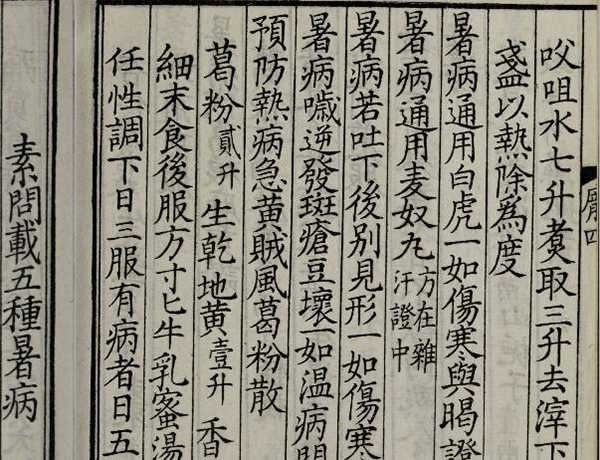 㕮咀水七升煑取三升去滓下
盞以熱除為度
暑病通用白虎一如傷寒與暍證
暑病通用麦奴丸方在雜汗證中
暑病若吐下後別見形一如傷寒
暑病噦逆發斑瘡豆壞一如温病
預防熱病急黄賊風葛粉散
葛粉貳升 生乾地黄壹升 香
細末食後服方寸匕牛乳蜜湯
任性調下日三服有病者日五
素問載五種暑病